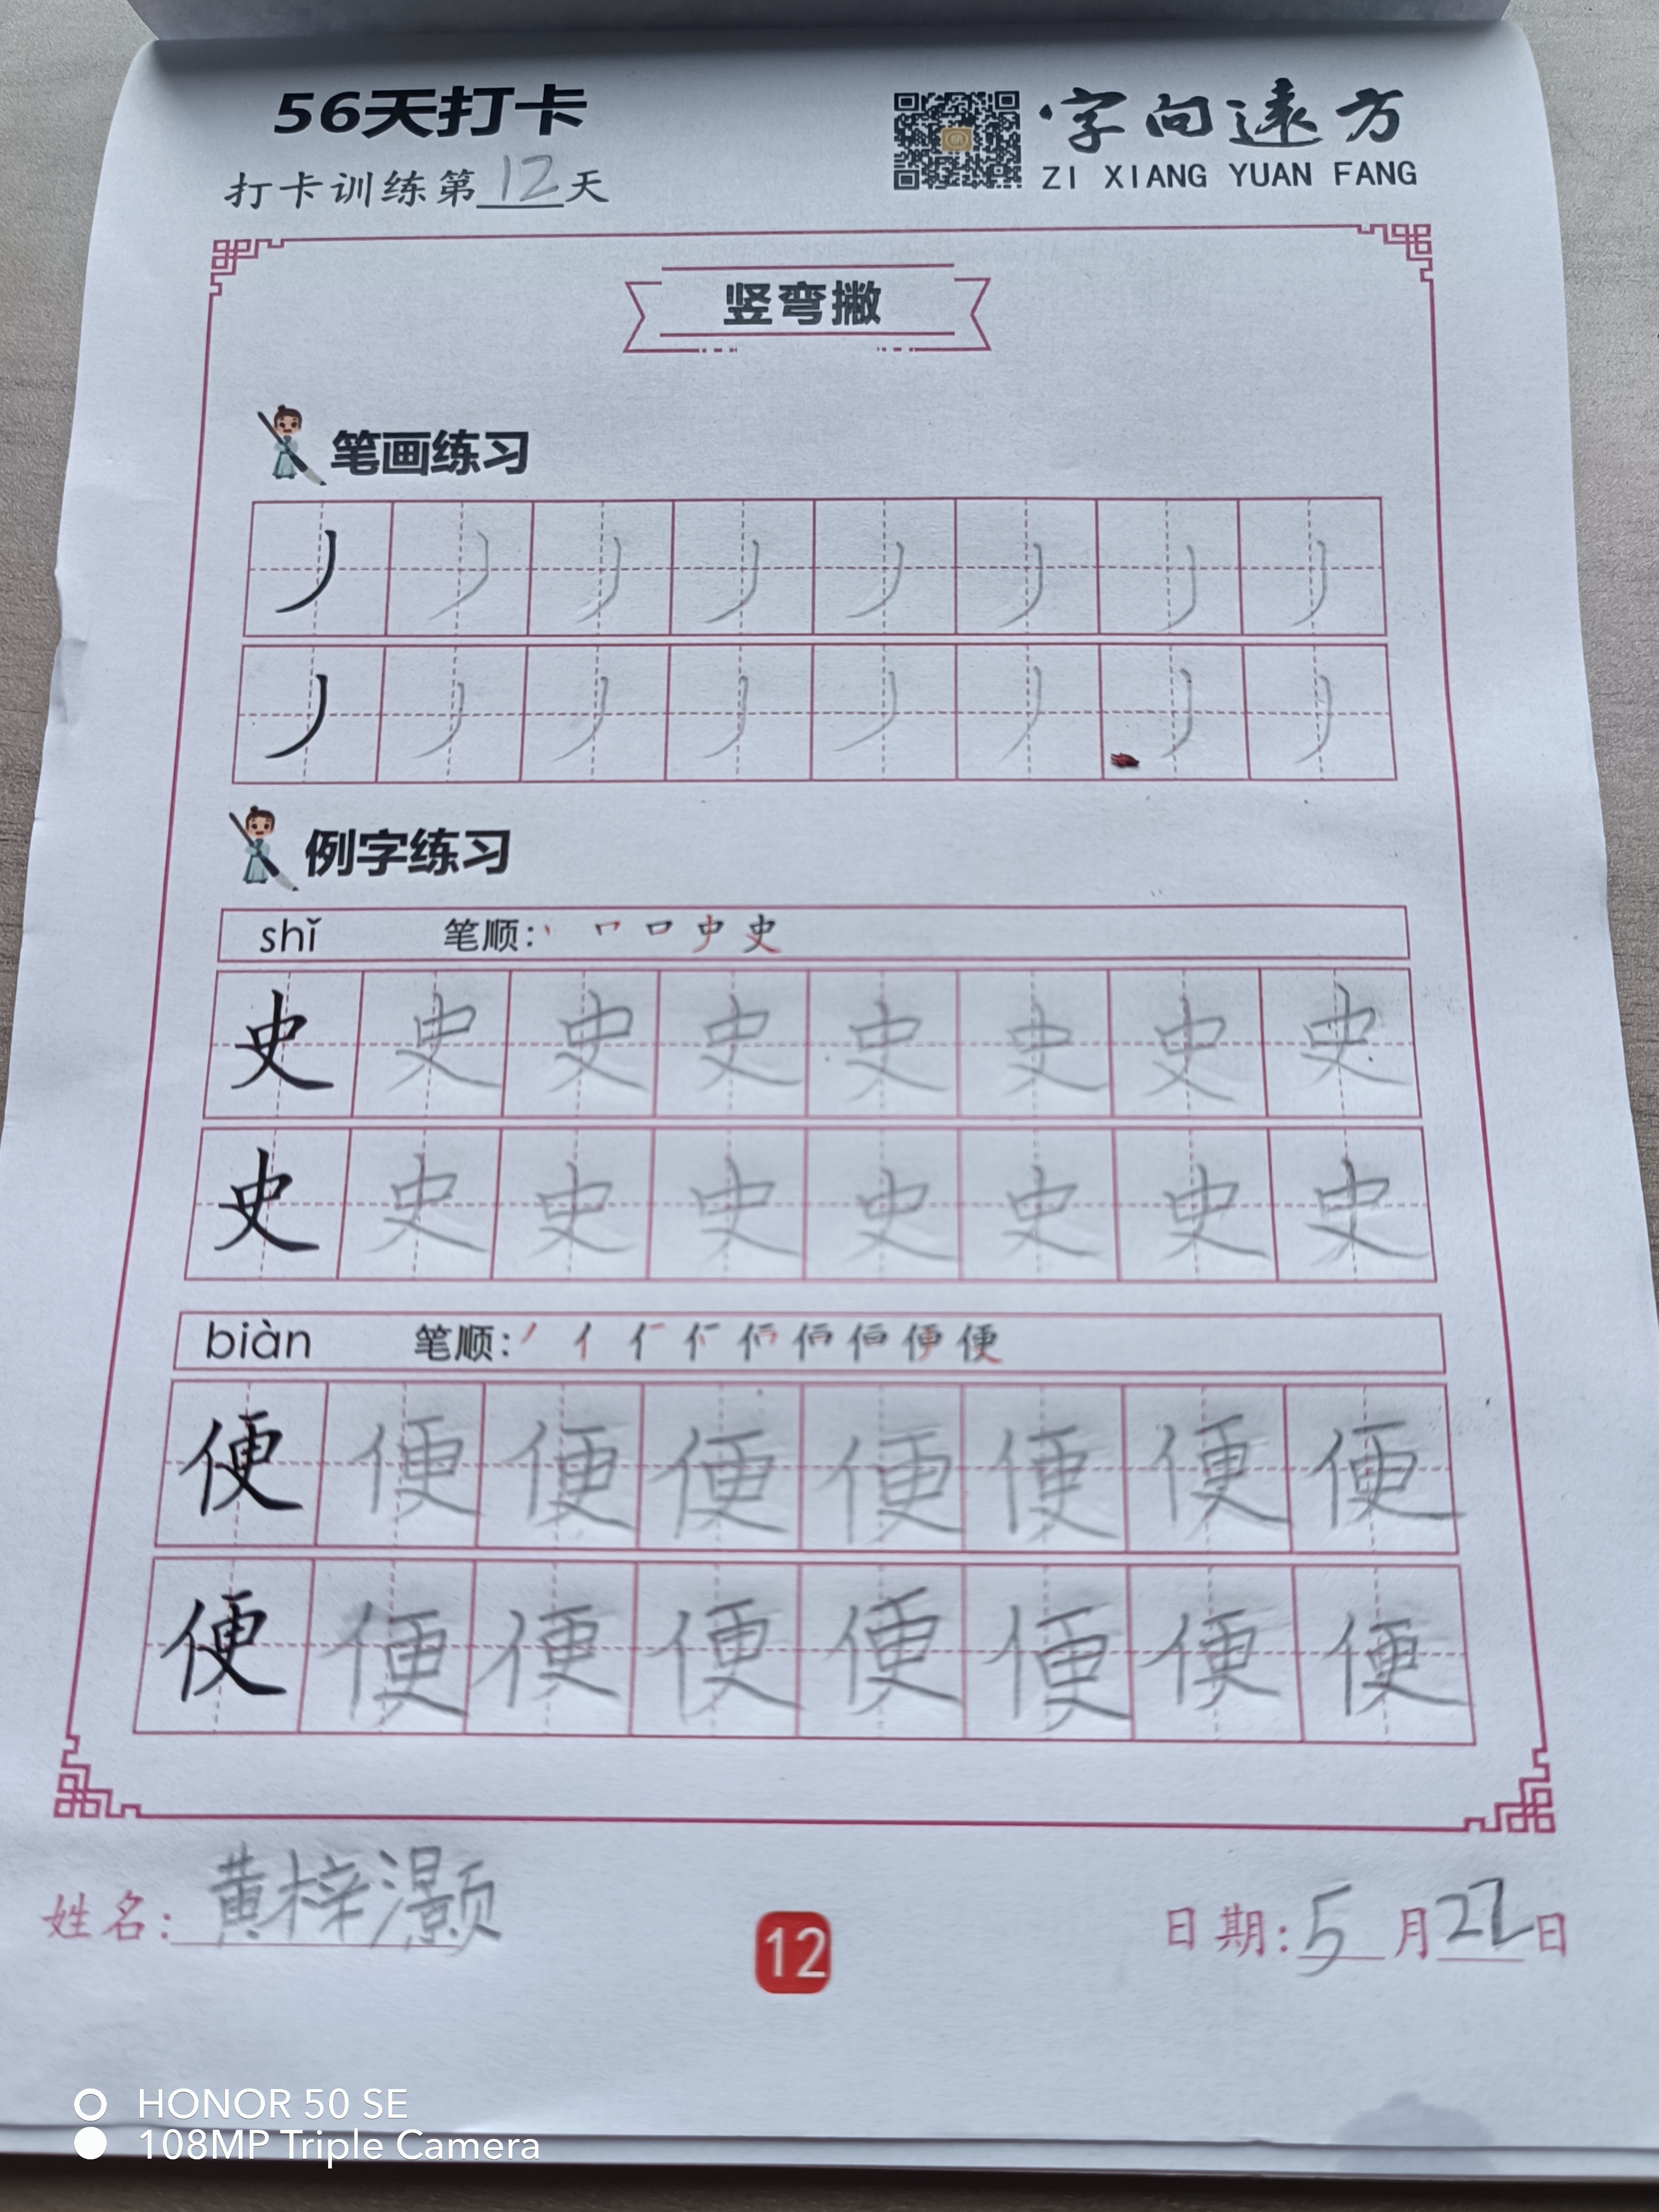 56天打卡
打卡训练第12天
字向遠方
ZI XIANG YUAN FANG
竖弯撇
笔画练习
丿 丿 丿 丿 丿 丿 丿 丿
丿 丿 丿 丿 丿 丿 丿 丿
例字练习
shǐ 笔顺: 丶 𠃍 口 史 史
史 史 史 史 史 史 史 史
史 史 史 史 史 史 史 史
biàn 笔顺: 丿 亻 便 便
便 便 便 便 便 便 便 便
便 便 便 便 便 便 便 便
姓名: 黄梓灏
12
日期: 5月22日
HONOR 50 SE
108MP Triple Camera